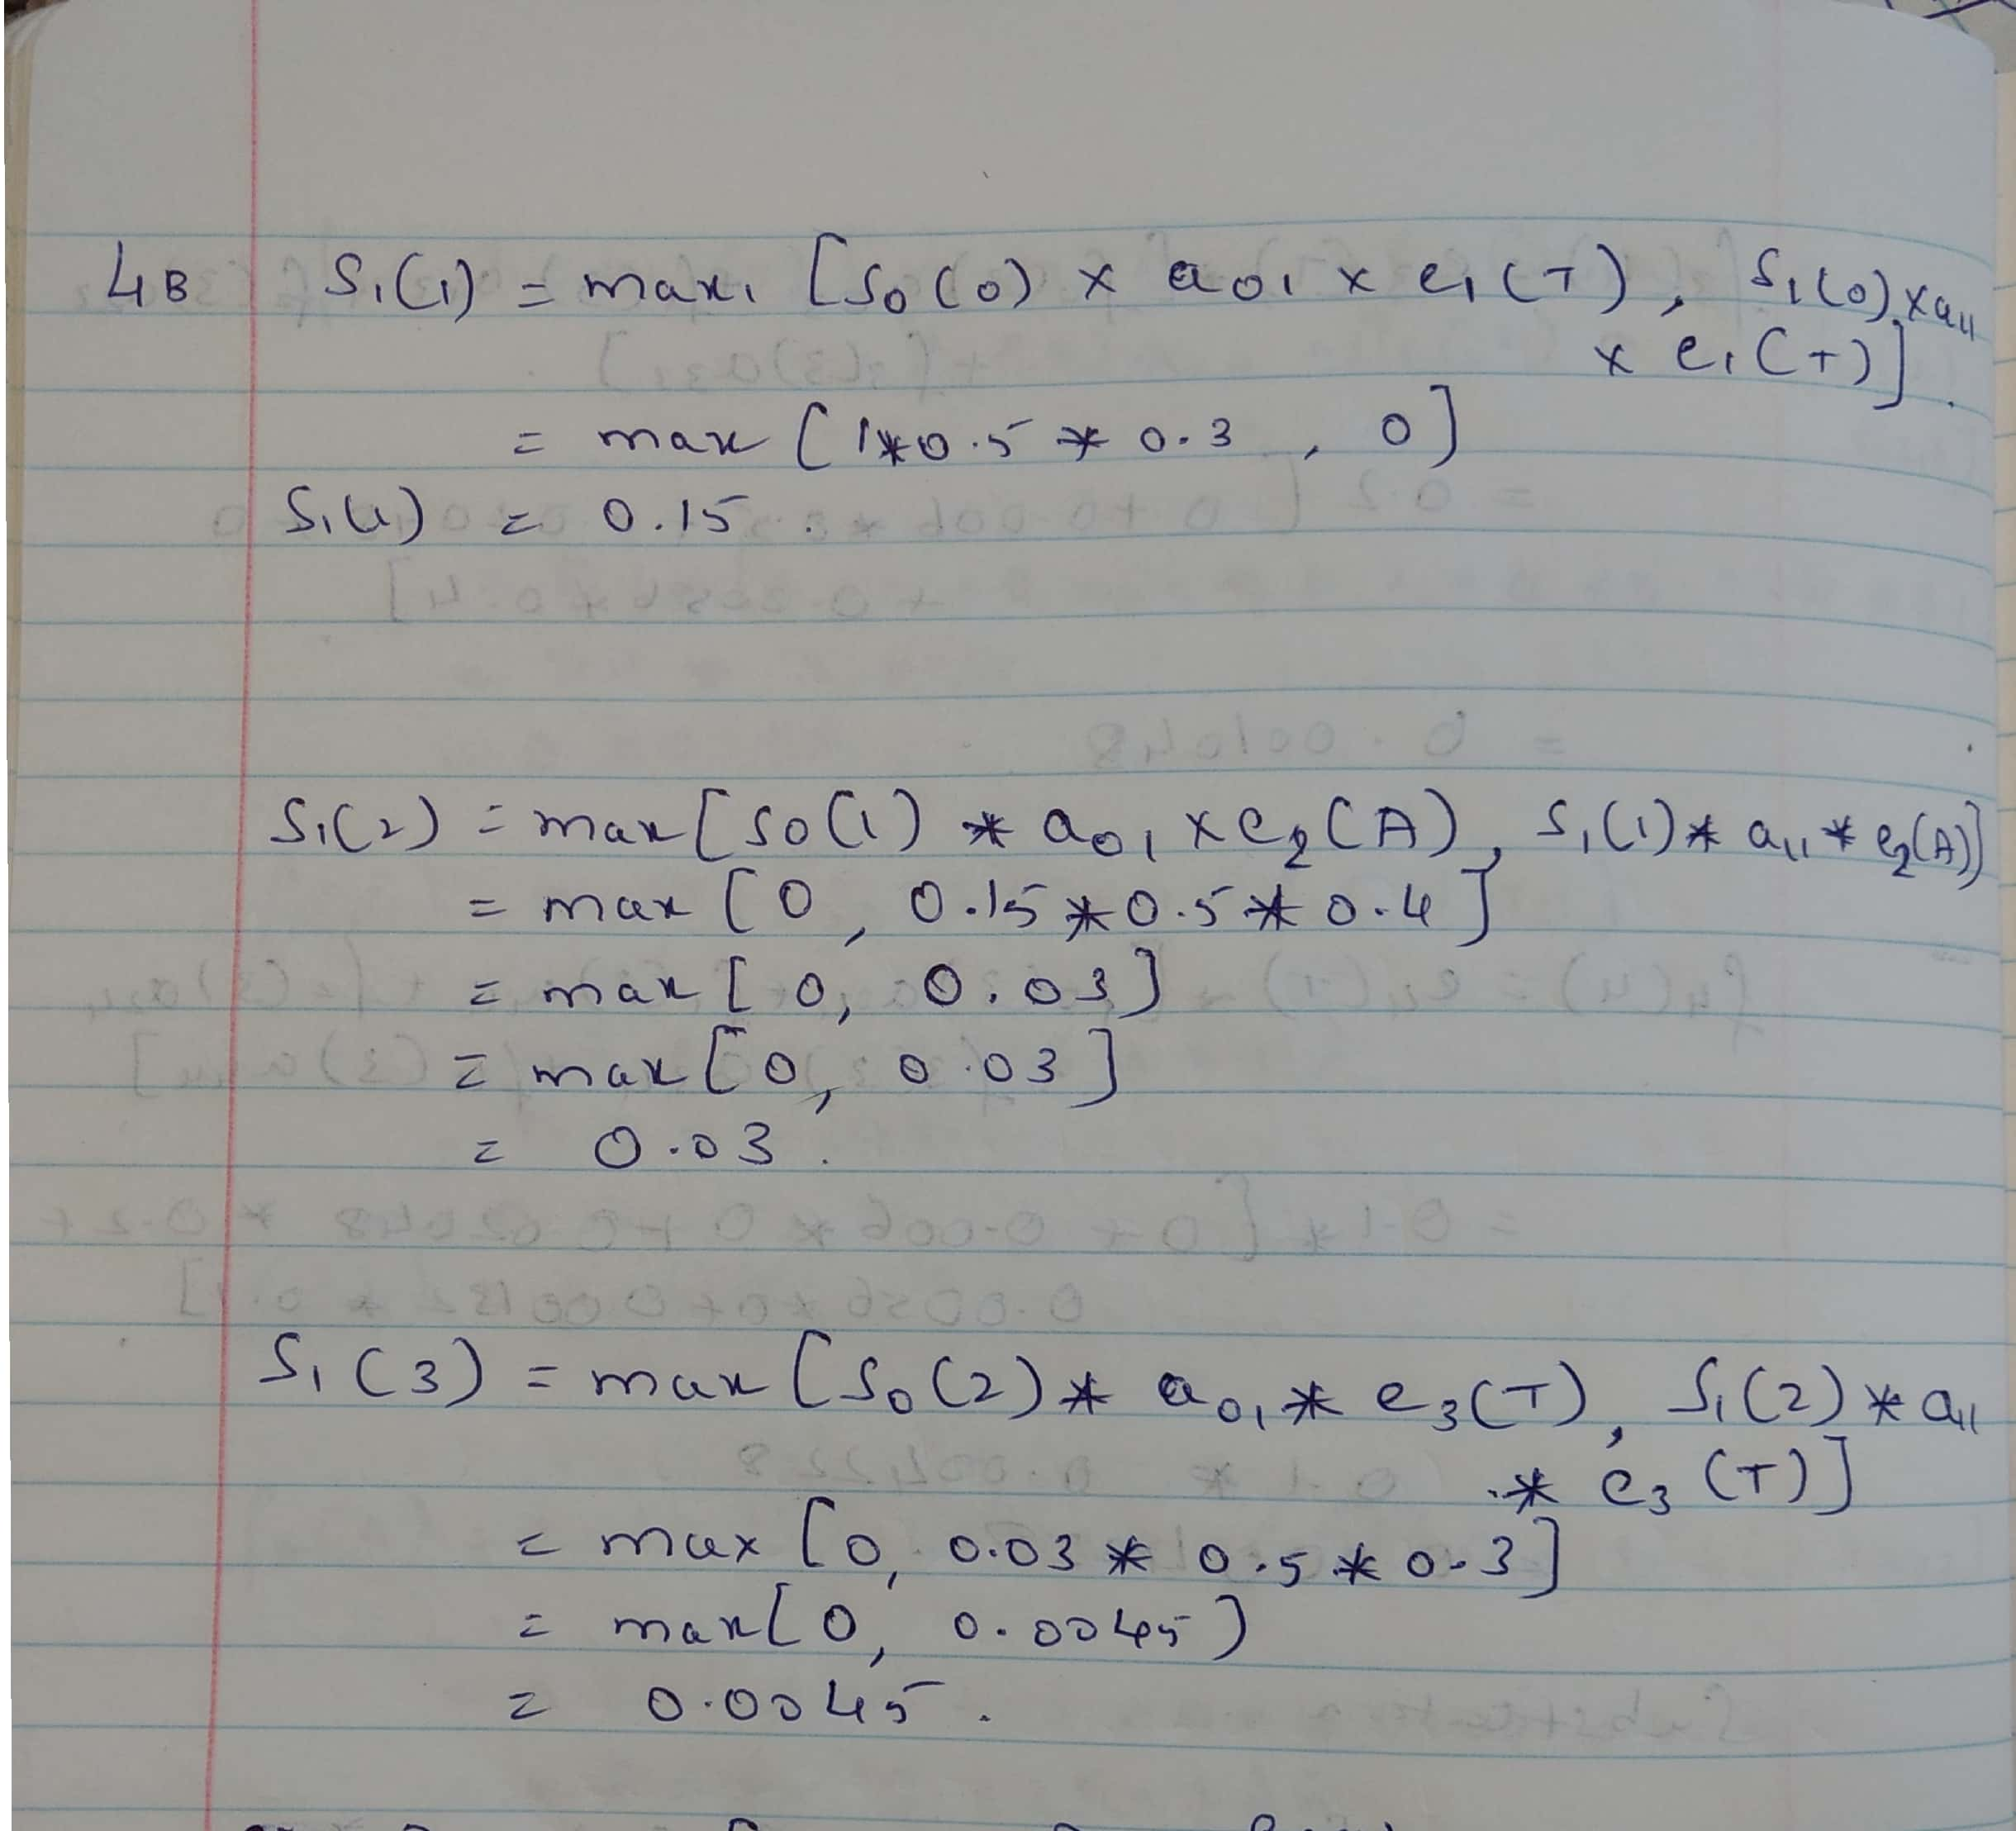 4B S₁(1) = max, [S₀(0) × a₀₁ × e₁(T), S₁(0) × a₁₁
× e₁(T)].
= max [1*0.5 * 0.3, 0]
S₁(1) = 0.15.
S₁(2) = max[S₀(1) * a₀₁ × e₂(A), S₁(1) * a₁₁ * e₂(A)]
= max [0, 0.15 * 0.5 * 0.4]
= max [0, 0.03]
= max [0, 0.03]
= 0.03.
S₁(3) = max [S₀(2) * a₀₁ * e₃(T), S₁(2) * a₁₁
* e₃(T)]
= max [0, 0.03 * 0.5 * 0.3]
= max[0, 0.0045)
= 0.0045.